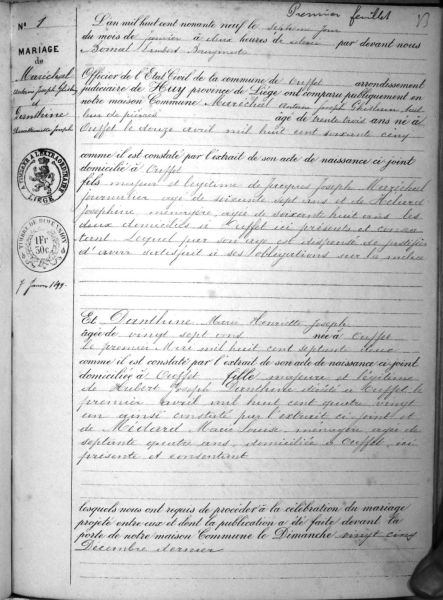 Premier feuillet
N° 1
MARIAGE
de
Maréchal
Antoine Joseph
et
Danthine
Marie Henriette Joseph
A L'EXTRAORDINAIRE
LIEGE
TIMBRE DE DIMENSION
1 Fr
50c
7 Janvier 1899
L'an mil huit cent nonante neuf le septième jour
du mois de janvier à deux heures de relevée par devant nous
Bomal Lambert
Officier de l'Etat Civil de la commune de Ouffet arrondissement
judiciaire de Huy province de Liége ont comparu publiquement en
notre maison Commune Maréchal Antoine Joseph Ghislain
de pierres âgé de trente trois ans né à
Ouffet le douze avril mil huit cent soixante cinq
comme il est constaté par l'extrait de son acte de naissance ci joint
domicilié à Ouffet
fils majeur et légitime de Jacques Joseph Maréchal
journalier âgé de soixante sept ans et de
Joséphine ménagère âgée de soixante huit ans les
deux domiciliés à Ouffet ici présents et consen
tant Lequel par son âge est dispensé de justifier
d'avoir satisfait à ses obligations sur la milice
Et Danthine Marie Henriette Joseph
âgée de vingt sept ans née à Ouffet
le premier Mai mil huit cent septante deux
comme il est constaté par l'extrait de son acte de naissance ci-joint
domiciliée à Ouffet fille majeure et légitime
de Hubert Joseph Danthine décédé à Ouffet le
premier avril mil huit cent quatre vingt
un ainsi constaté par l'extrait ci joint et
de Médard Marie Louise ménagère âgée de
septante quatre ans, domiciliée à Ouffet, ici
présente et consentant
lesquels nous ont requis de procéder à la célébration du mariage
projeté entre eux et dont la publication a été faite devant la
porte de notre maison Commune le Dimanche vingt cinq
Décembre dernier